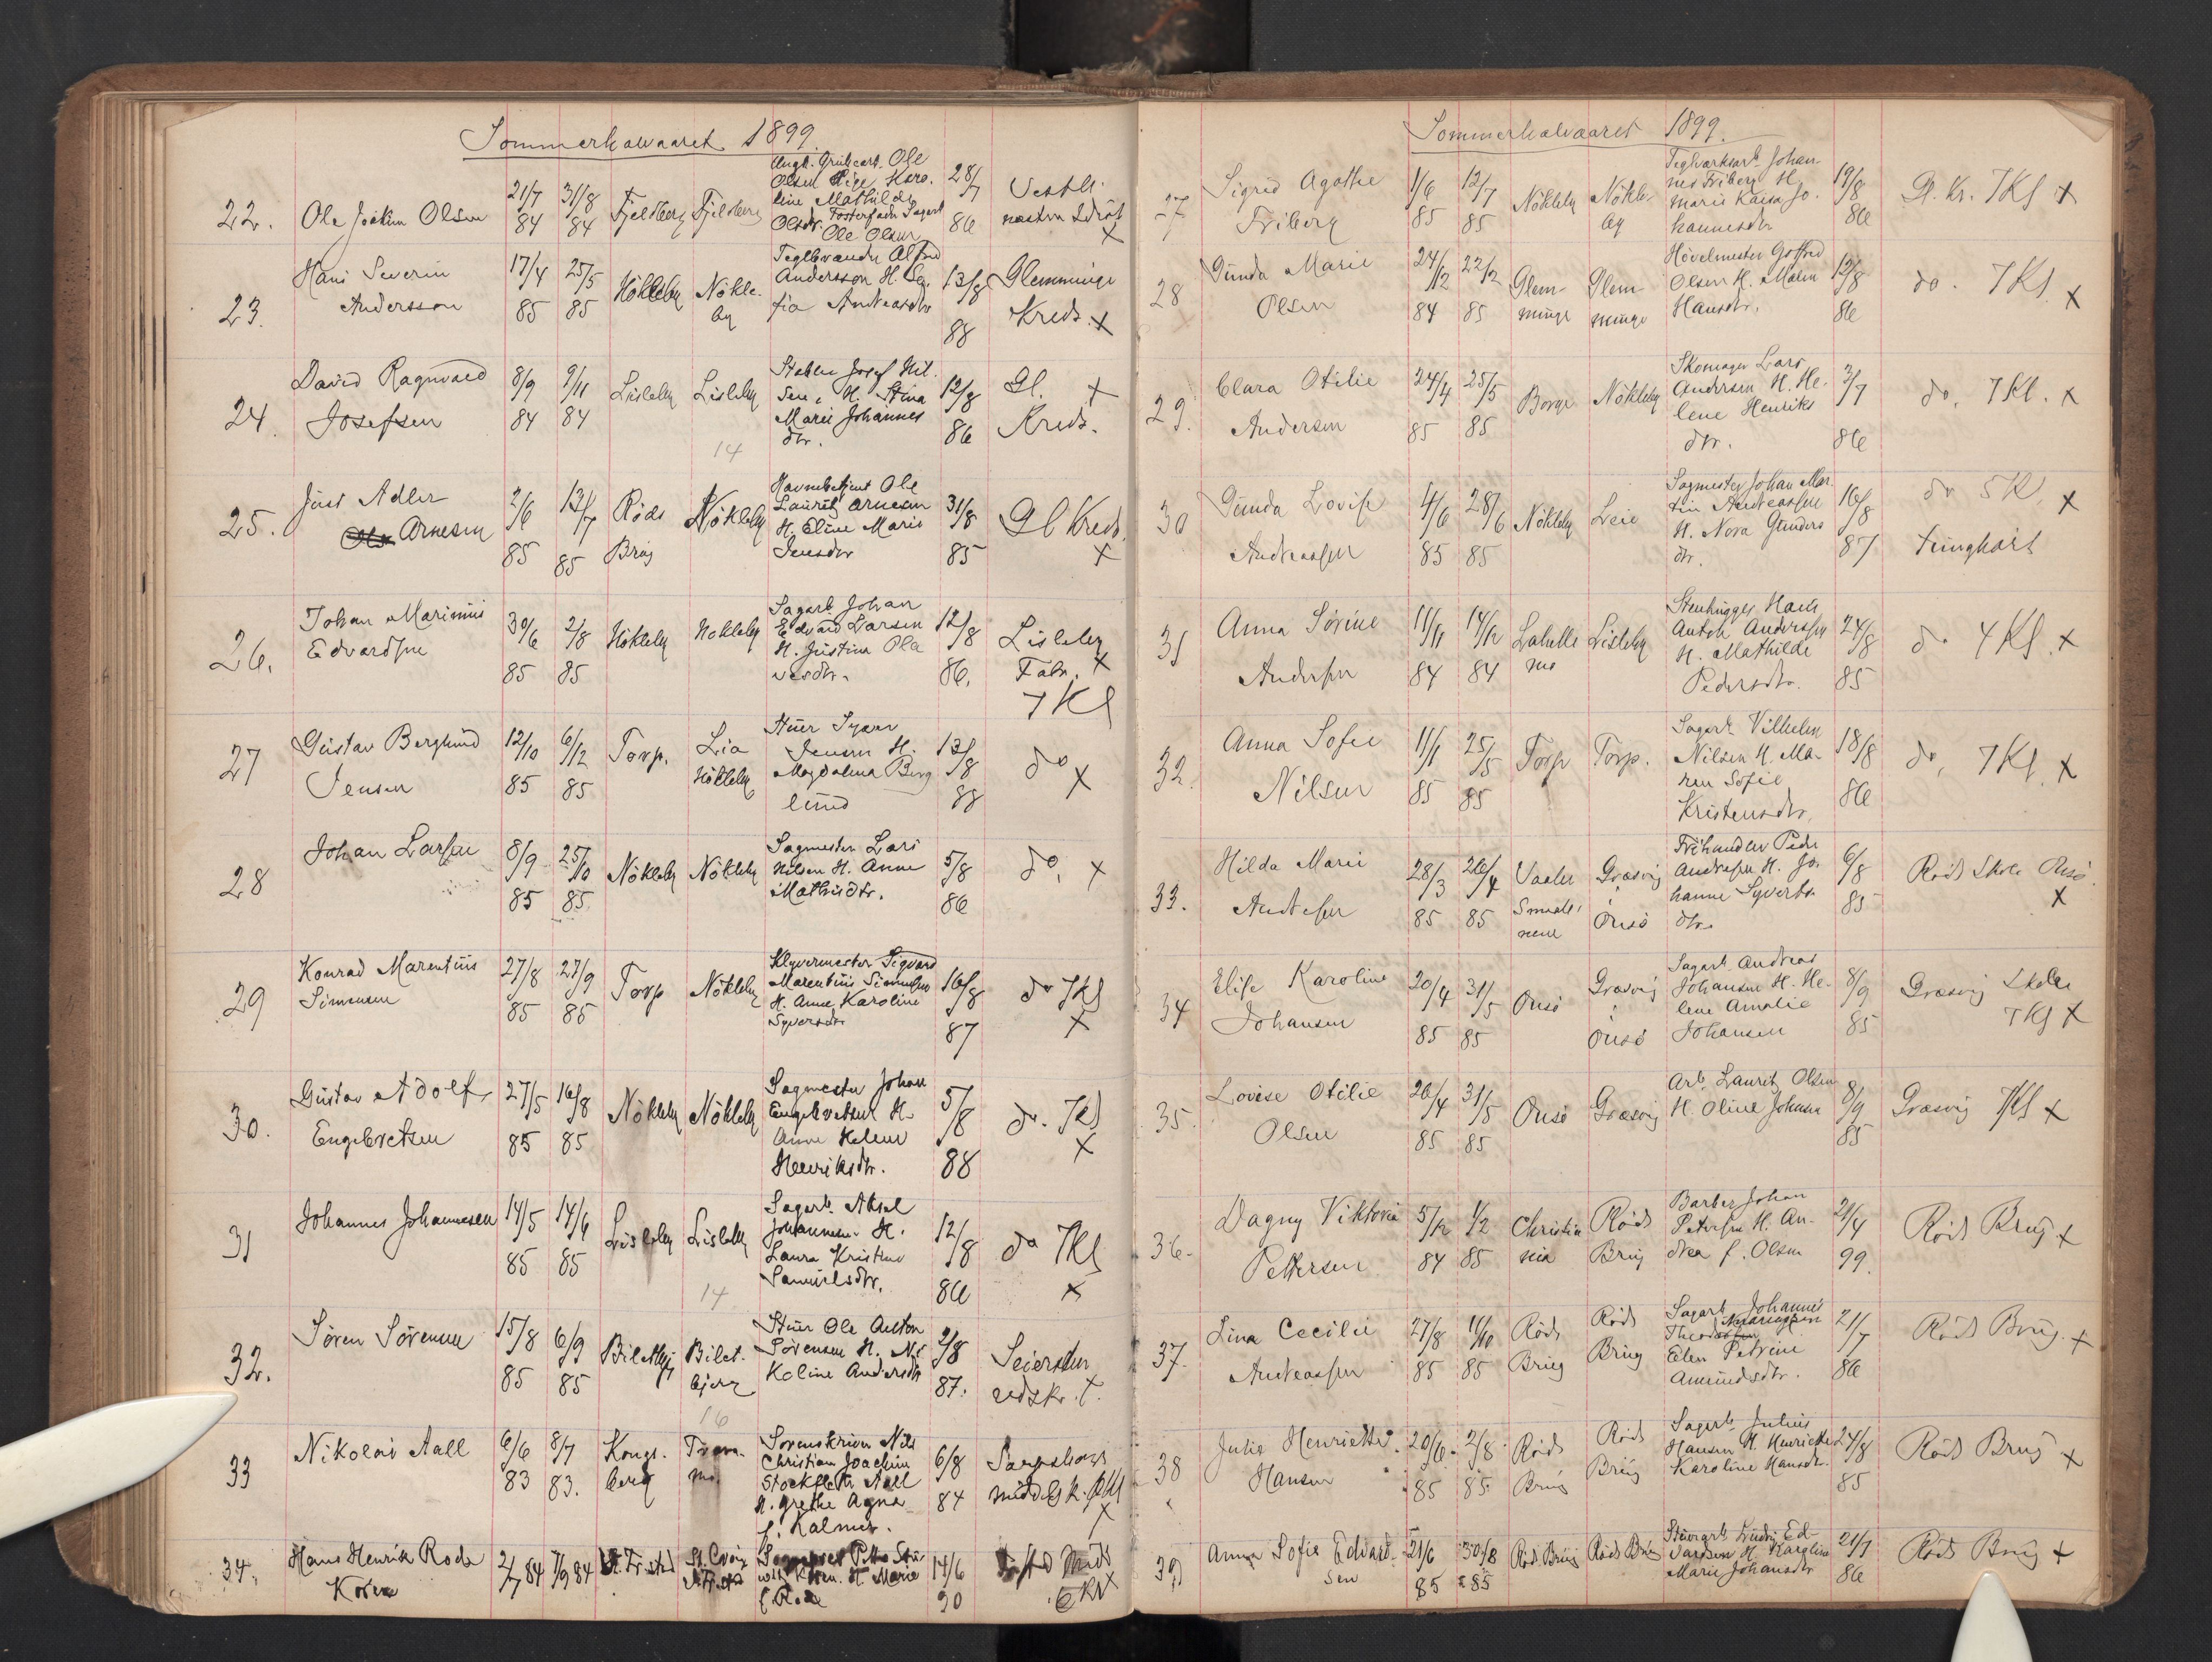 Sommerhalvaaret 1899.
22. Ole Joakim Olsen 21/7 84 31/8 84 Fjeldberg Fjeldberg
Olsen Pige Karo-
line Mathilde
Olsdtr. Fosterfader Sagarb.
Ole Olsen 28/7 86
23. Hans Severin
Andersson 17/4 85 25/5 85 Nökleby Nökle-
by
Teglbrænder Alfred
Andersson H. So-
fia Andreasdtr 13/8 88 Glemminge
Kreds. x
24. David Ragnvald
Josefsen 8/9 84 9/11 84 Lisleby Lisleby
14
Stabler Josef Nil-
sen, H. Stina
Marie Johannes
dtr. 12/8 86 Gl.
Kreds. x
25. Just Adler
Arnesen 2/6 85 13/7 85 Röds
Brug Nökleby
Havnebetjent Ole
Lauritz Arnesen
H. Eline Marie
Jensdtr 31/8 85 Gl Kreds.
x
26. Johan Marinius
Edvardsen 30/6 85 2/8 85 Nökleby Nökleby
Sagarb Johan
Edvard Larsen
H. Justina Ola
vesdtr. 12/8 86. Lisleby
Fabr. x
7 Kl
27 Gustav Berglund
Jensen 12/10 85 6/12 85 Torp. Lia
Nökleby
Jensen H.
Magdalena Berg
lund 13/8 88 do x
28 Johan Larsen 8/9 85 25/10 85. Nökleby Nökleby
Sagmester Lars
Nilsen H. Anne
Mathisdtr. 5/8 86 do, x
29 Konrad Marentius
Simensen 27/8 85 27/9 85 Torp Nökleby
Klyvermester Sigvard
Marentius Simensen
H. Anne Karoline
Syversdtr 16/8 87 do 7Kl
x
30. Gustav Adolf
Engebretsen 27/5 85 16/8 85 Nökleby Nökleby
Sagmester Johan
Engebretsen H.
Anne Helene
Henriksdtr. 5/8 88 do. 7Kl
x
31 Johannes Johannesen 14/5 85 14/6 85 Lisleby Lisleby
14
Sagarb. Aksel
Johannesen H.
Laura Kristine
Samuelsdtr. 12/8 86 do 7Kl
x
32. Sören Sörensen 15/8 85 6/9 85 Biletbj. Bilet-
bjerg
16
Stuer Ole Anton
Sörensen H. Ni-
koline Andersdtr 2/8 87.
33 Nikolai Aall 6/6 83 8/7 83. Kongs-
berg
Sorenskriver Nils
Christian Joachim
Stockfleth Aall
H. Grethe Agna
f. Kalmer. 6/8 84 Sarpsborgs
x
34. Hans Henrik Rode
Koren 2/7 84 7/9 84 St. Croix
H. Marie
f. Rode 14/6 90
Sommerhalvaaret 1899.
27 Sigrid Agathe
Friberg 1/6 85 12/7 85 Nökleby Nökle-
by
Teglverksarb Johan-
nes Friberg H.
Marie Kaisa Jo-
hannesdtr 19/8 86 Gl. Kr. 7Kl x
28 Gunda Marie
Olsen 24/12 84 22/2 85 Glem-
minge Glem
minge
Hövelmester Gotfred
Olsen H. Maren
Hansdtr. 12/8 86 do. 7Kl x
29. Clara Otilie
Andersen 24/4 85 25/5 85 Borge Nökleby
Skomager Lars
Andersen H. He-
lene Henriks
dtr. 3/7 86 do, 7Kl. x
30 Gunda Lovise
Andreassen 4/6 85 28/6 85 Nökleby Leie
Sagmester Johan Mar
tin Andreassen
H. Nora Gunders
dtr. 16/8 87 do 5Kl x
31 Anna Sörine
Andersen 11/11 84 14/12 84 Lisleby
Stenhugger Hans
Anton Andersen
H. Mathilde
Pedersdtr. 24/8 85 do 4Kl. x
32. Anna Sofie
Nilsen 11/1 85 25/5 85 Torp Torp.
Sagarb Vilhelm
Nilsen H. Ma-
ren Sofie
Kristensdtr. 18/8 86 do, 7Kl. x
33. Hilda Marie
Andresen 28/3 85 26/4 85 Vaaler
Smaale-
nene Græsvig
i
Onsö
Peder
Andresen H. Jo-
hanne Syverts
dtr. 6/8 85 Röds Skole Onsö.
x
34 Elise Karoline
Johansen 20/4 85 31/5 85 Onsö Græsvig
i
Onsö
Sagarb. Andreas
Johansen H. He-
lene Amalie
Johansen 8/9 85 Græsvig Skole
7Kl x
35. Lovise Otilie
Olsen 26/4 85 31/5 85 Onsö Græsvig
Arb. Laurits Olsen
H. Oline Johnsen 8/9 85 Græsvig 7Kl x
36. Dagny Viktoria
Pettersen 5/12 84 1/2 85 Christia
nia Röds
Brug
Barber Johan
Petersen H. An-
drea f. Olsen 21/4 99. Röds Brug x
37. Lina Cecilie
Andreassen 27/8 85 11/10 85 Röds
Brug Röds
Brug
Sagarb Johannes
Elen Petrine
Amundsdtr. 21/7 86 Röds Brug. x
38 Julie Henriette
Hansen 20/6 85 2/8 85. Röds
Brug Röds
Brug
Sagarb Julius
Hansen H. Henriette
Karoline Hansdtr. 24/8 85 Röds Brug x
39 Anna Sofie Edvard-
sen 21/6 85 30/8 85 Röds Brug Röds Brug
Ed-
vardsen H. Karoline
Marie Johansdtr 21/7 86 Röds Brug x